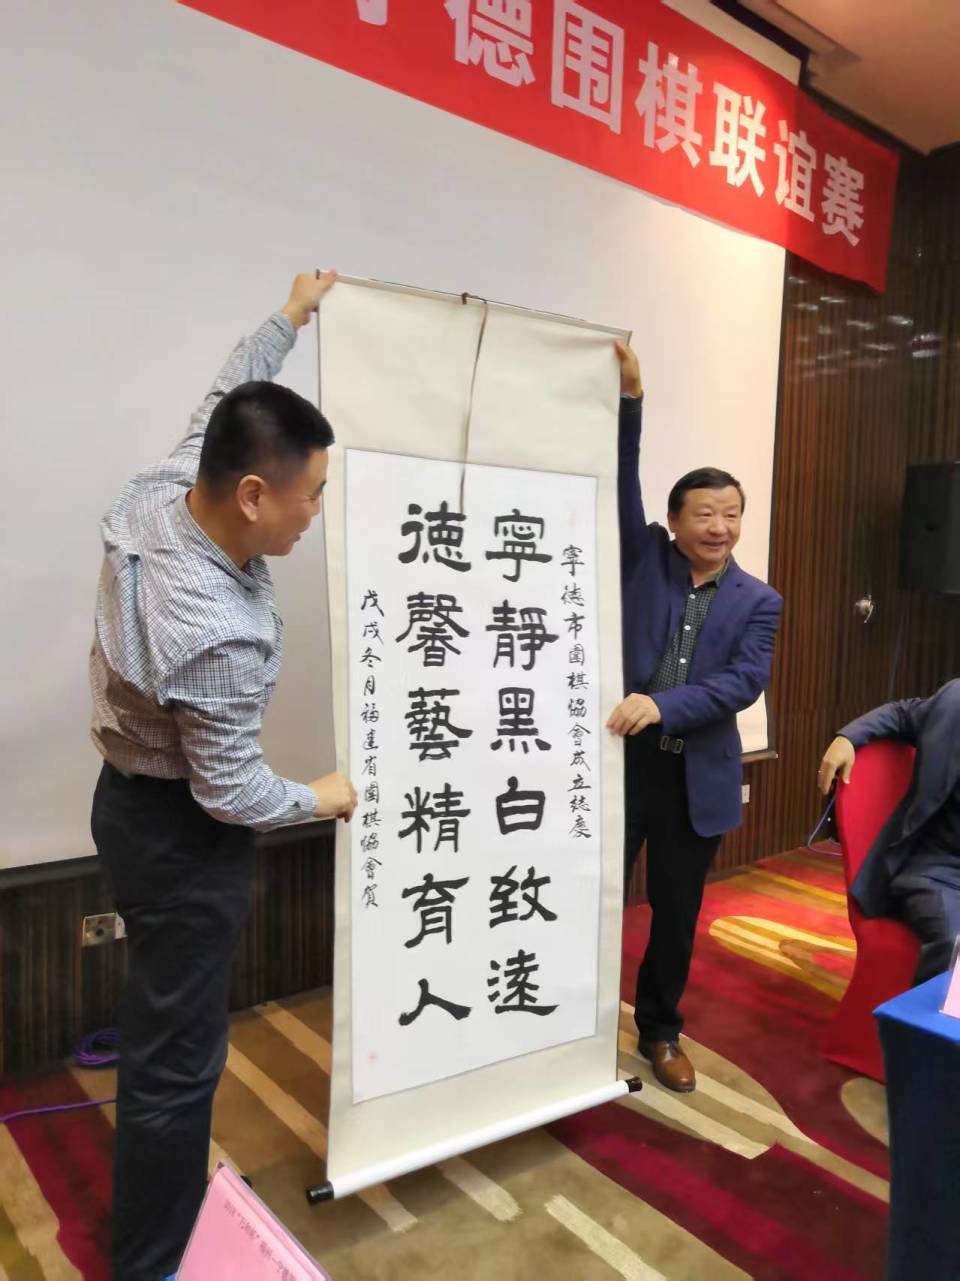 德围棋联谊赛
寧德市圍棋協會成立誌慶
寧靜黑白致遠
德馨藝精育人
戊戌冬月福建省圍棋協會賀